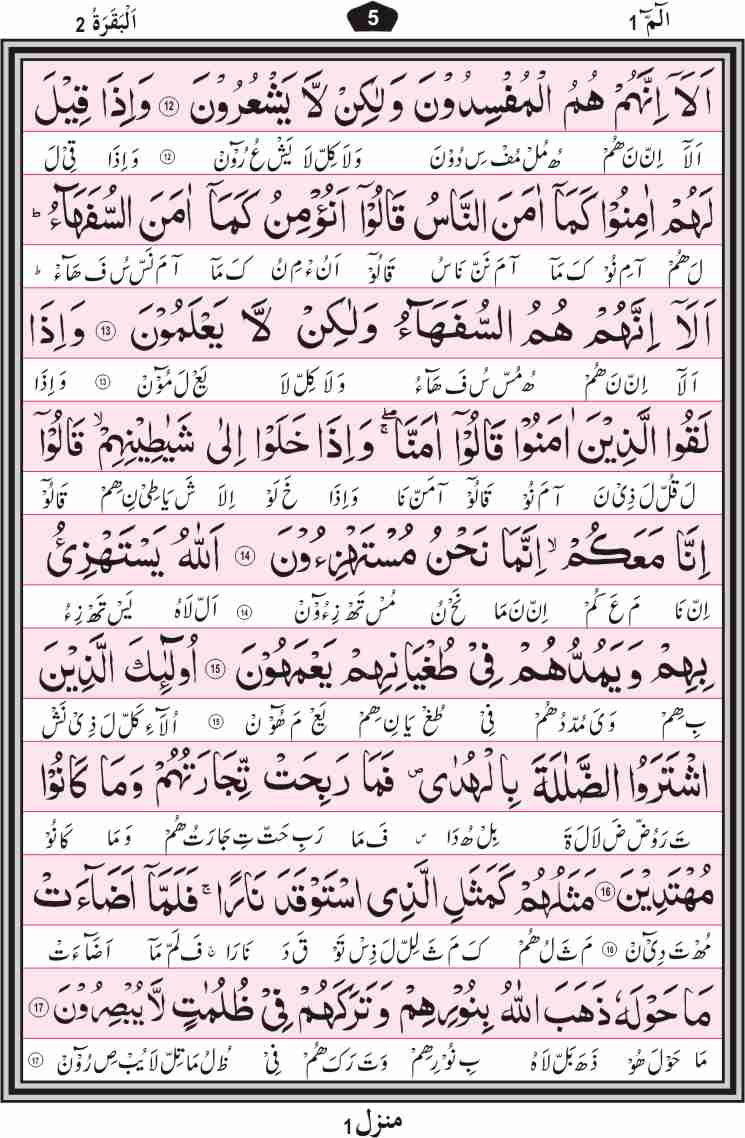 الٓمّٓ 1
5
اَلْبَقَرَةُ 2
اَلَاۤ اِنَّهُمْ هُمُ الْمُفْسِدُوْنَ وَلٰكِنْ لَّا يَشْعُرُوْنَ 12 وَاِذَا قِيْلَ
اَلَآ اِنّ نَ هُمْ هُ مُلْ مُفْ سِ دُوْنَ وَ لَا كِلّ لَا يَشْ عُ رُوْٓنْ 12 وَ اِذَا قِىْ لَ
لَهُمْ اٰمِنُوْا كَمَاۤ اٰمَنَ النَّاسُ قَالُوْۤا اَنُؤْمِنُ كَمَاۤ اٰمَنَ السُّفَهَآءُ ؕ
لَ هُمْ آ مِ نُوْ كَ مَآ آ مَ نَنّ نَاسُ قَالُوْٓ اَ نُ ءْ مِ نُ كَ مَآ آ مَ نَسّ سُ فَ هَآءْ ؕ
اَلَاۤ اِنَّهُمْ هُمُ السُّفَهَآءُ وَلٰكِنْ لَّا يَعْلَمُوْنَ 13 وَاِذَا
اَلَآ اِنّ نَ هُمْ هُ مُسّ سُ فَ هَآءُ وَ لَا كِلّ لَا يَعْ لَ مُوْٓنْ 13 وَ اِذَا
لَقُوا الَّذِيْنَ اٰمَنُوْا قَالُوْۤا اٰمَنَّا ۖۚ وَاِذَا خَلَوْا اِلٰى شَيٰطِيْنِهِمْ ۙ قَالُوْۤا
لَ قُلّ لَ ذِىْ نَ آ مَ نُوْ قَالُوْٓ آ مَنّ نَا وَ اِذَا خَ لَوْ اِلَا شَ يَا طِىْ نِ هِمْ قَالُوْٓ
اِنَّا مَعَكُمْ ۙ اِنَّمَا نَحْنُ مُسْتَهْزِءُوْنَ 14 اَللّٰهُ يَسْتَهْزِئُ
اِنّ نَا مَ عَ كُمْ اِنّ نَ مَا نَحْ نُ مُسْ تَهْ زِ ءُوْٓنْ 14 اَلّ لَاهُ يَسْ تَهْ زِ ءُ
بِهِمْ وَيَمُدُّهُمْ فِىْ طُغْيَانِهِمْ يَعْمَهُوْنَ 15 اُولٰٓئِكَ الَّذِيْنَ
بِ هِمْ وَ يَ مُدّ دُ هُمْ فِىْ طُغْ يَا نِ هِمْ يَعْ مَ هُوْٓنْ 15 اُلَآءِ كَلّ لَ ذِىْ نَشْ
اشْتَرَوُا الضَّلٰلَةَ بِالْهُدٰى ۪ فَمَا رَبِحَتْ تِّجَارَتُهُمْ وَمَا كَانُوْا
تَ رَ وُضّ ضَ لَا لَ ةَ بِلْ هُ دَا ۪ فَ مَا رَ بِ حَتّ تِ جَا رَ تُ هُمْ وَ مَا كَا نُوْ
مُهْتَدِيْنَ 16 مَثَلُهُمْ كَمَثَلِ الَّذِى اسْتَوْقَدَ نَارًا ۚ فَلَمَّاۤ اَضَآءَتْ
مُهْ تَ دِىْٓنْ 16 مَ ثَ لُ هُمْ كَ مَ ثَ لِلّ لَ ذِسْ تَوْ قَ دَ نَارَا ۚ فَ لَمّ مَآ اَضَآءَتْ
مَا حَوْلَهٗ ذَهَبَ اللّٰهُ بِنُوْرِهِمْ وَتَرَكَهُمْ فِىْ ظُلُمٰتٍ لَّا يُبْصِرُوْنَ 17
مَا حَوْلَ هُوْ ذَهَ بَلّ لَاهُ بِ نُوْرِهِمْ وَتَ رَكَ هُمْ فِىْ ظُ لُ مَا تِلّ لَا يُبْ صِ رُوْٓنْ 17
منزل 1